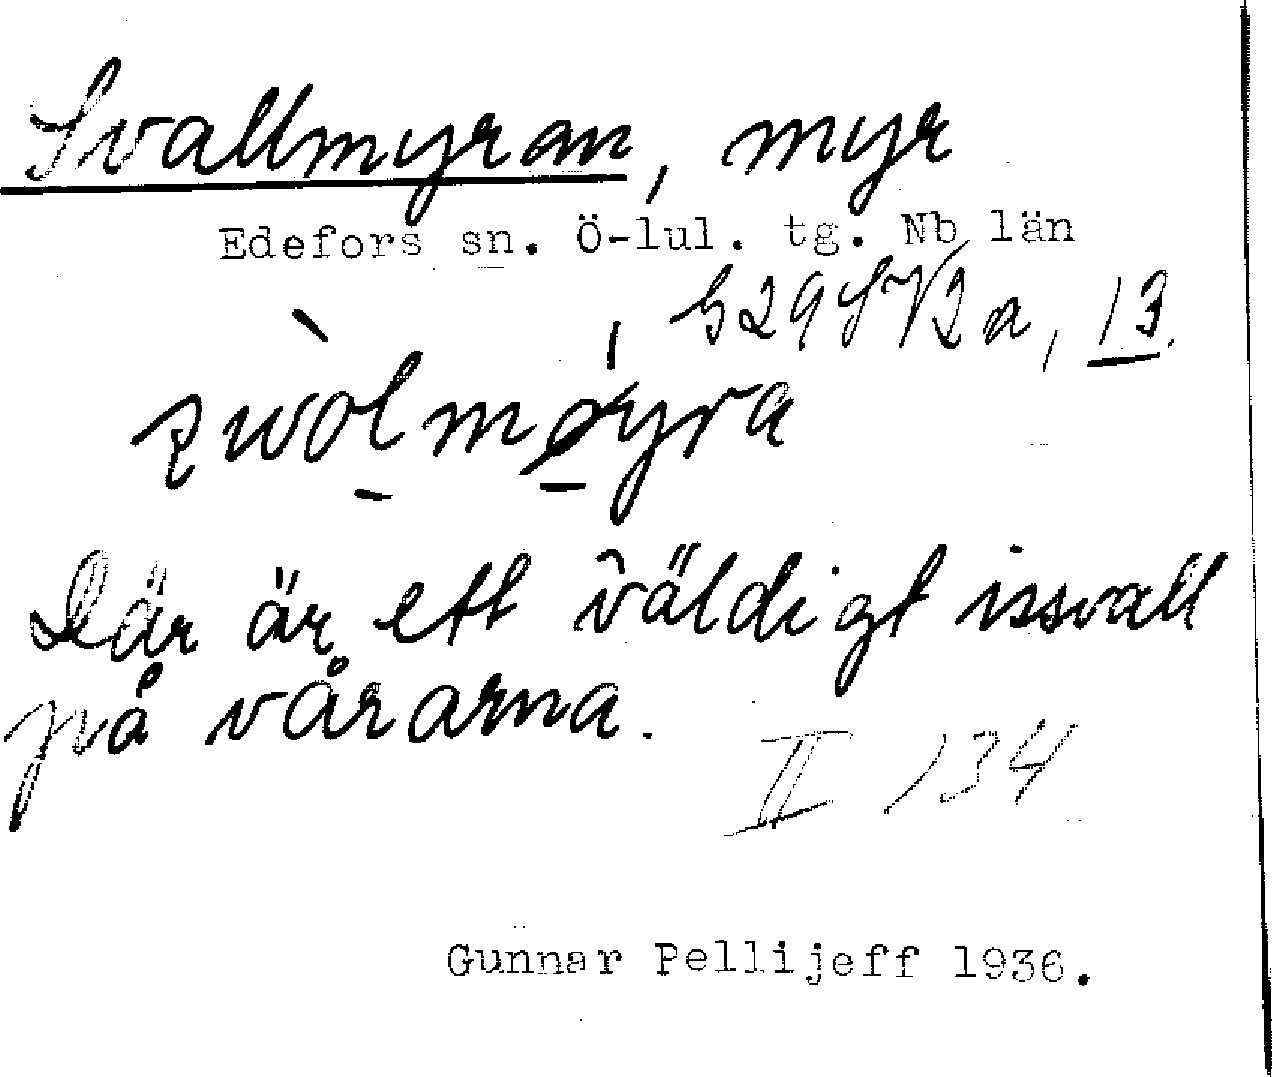 Svallmyran, myr
Edefors sn. Ö-lul. tg. Nb län
13.
Där är ett väldigt issvall
på vårarna.
II 134
Gunnar Pellijeff 1936.